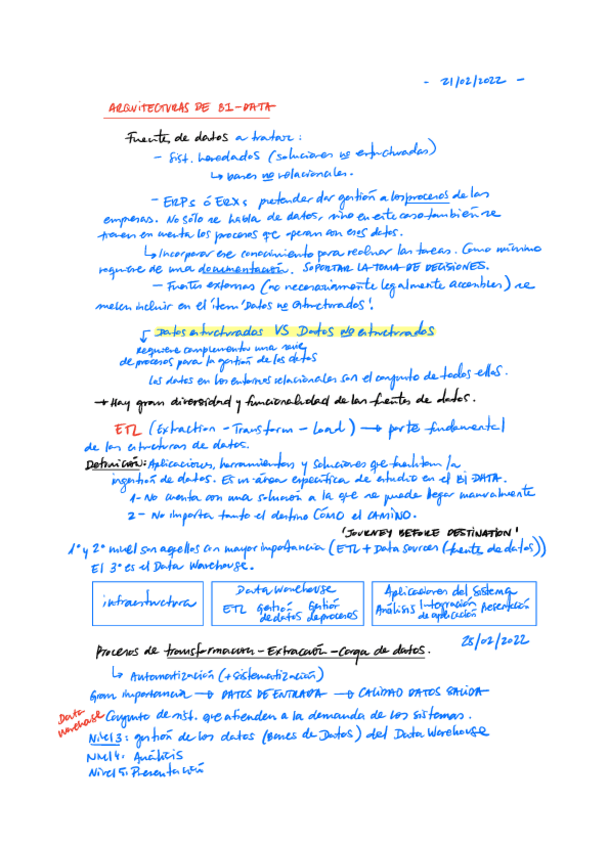 - 21/02/2022 -
ARQUITECTURAS DE BI-DATA
Fuente de datos a tratar:
- Sist. heredados (soluciones no estructuradas)
↳ bases no relacionales.
- ERPs ó ERXs pretender dar gestión a los procesos de las
empresas. No sólo se habla de datos, sino en este caso también se
tienen en cuenta los procesos qe operan con esos datos.
↳ Incorporar ese conocimiento para realizar las tareas. Como mínimo
requiere de una documentación. SOPORTAR LA TOMA DE DECISIONES.
- Fuentes externas (no necesariamente legalmente accesibles) se
suelen incluir en el ítem 'Datos no estructurados'.
Datos estructurados VS Datos no estructurados
↳ requiere complementar una serie
de procesos para la gestión de los datos
Los datos en los entornos relacionales son el conjunto de todos ellos.
→ Hay gran diversidad y funcionalidad de las fuentes de datos.
ETL (Extraction - Transform - Load) → parte fundamental
de las estructuras de datos.
Definición: Aplicaciones, herramientas y soluciones qe facilitan la
ingestión de datos. Es un área específica de estudio en el BI DATA.
1- No cuenta con una solución a la qe se puede llegar manualmente
2- No importa tanto el destino CÓMO el CAMINO.
'JOURNEY BEFORE DESTINATION'
1º y 2º nivel son aquellos con mayor importancia (ETL + Data sources (fuente de datos))
El 3º es el Data Warehouse.
infraestructura
Data Warehouse
ETL Gestión de datos Gestión de procesos
Aplicaciones del Sistema
Análisis Integración de aplicación Presentación
28/02/2022
Procesos de transformación - Extracción - Carga de datos.
↳ Automatización (+ sistematización)
Gran importancia → DATOS DE ENTRADA → CALIDAD DATOS SALIDA
Data Warehouse Conjunto de sist. que atienden a la demanda de los sistemas.
Nivel 3: gestión de los datos (Bases de Datos) del Data Warehouse
Nivel 4: Análisis
Nivel 5: Presentación